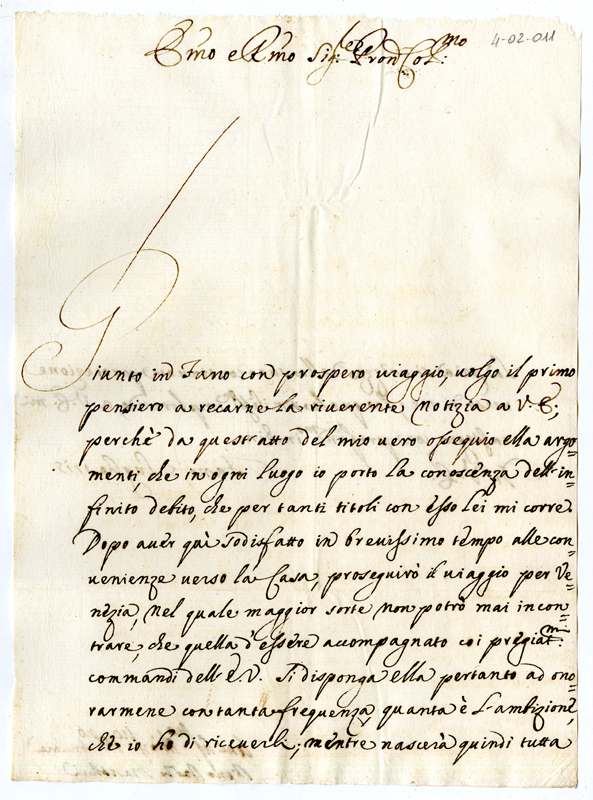 Emo e Rmo Sig:re Pron Col:mo
4-02-011
Giunto in Fano con prospero viaggio, volgo il primo
pensiero a recarne la riverente notizia a V. E.;
perchè da quest'atto del mio vero ossequio ella argo=
menti, che in ogni luogo io porto la conoscenza dell'in=
finito debito, che per tanti titoli con esso Lei mi corre.
Dopo aver quì sodisfatto in brevissimo tempo alle con=
venienze verso la Casa, proseguirò il viaggio per Ve=
nezia, nel quale maggior sorte non potrò mai incon=
trare, che quella d'essere accompagnato coi pregiat:mi
commandi dell'E. V. Si disponga ella pertanto ad ono=
rarmene con tanta frequenza, quanta è l'ambizione,
che io ho di riceverli; mentre nascerà quindi tutta